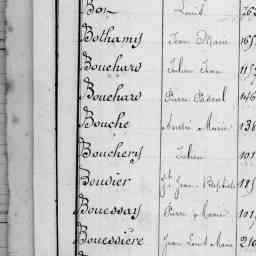 Bon Louis 763
Bothamy Jean Marie 165
Bouchard Julien Jean 115
Bouchard Pierre Pascal 146
Bouche André Marie 136
Bouchery Julien 101
Bouvier St Jean Baptiste 185
Bouessay Pierre Marie 101
Bouessière Jean Louis Marie 210